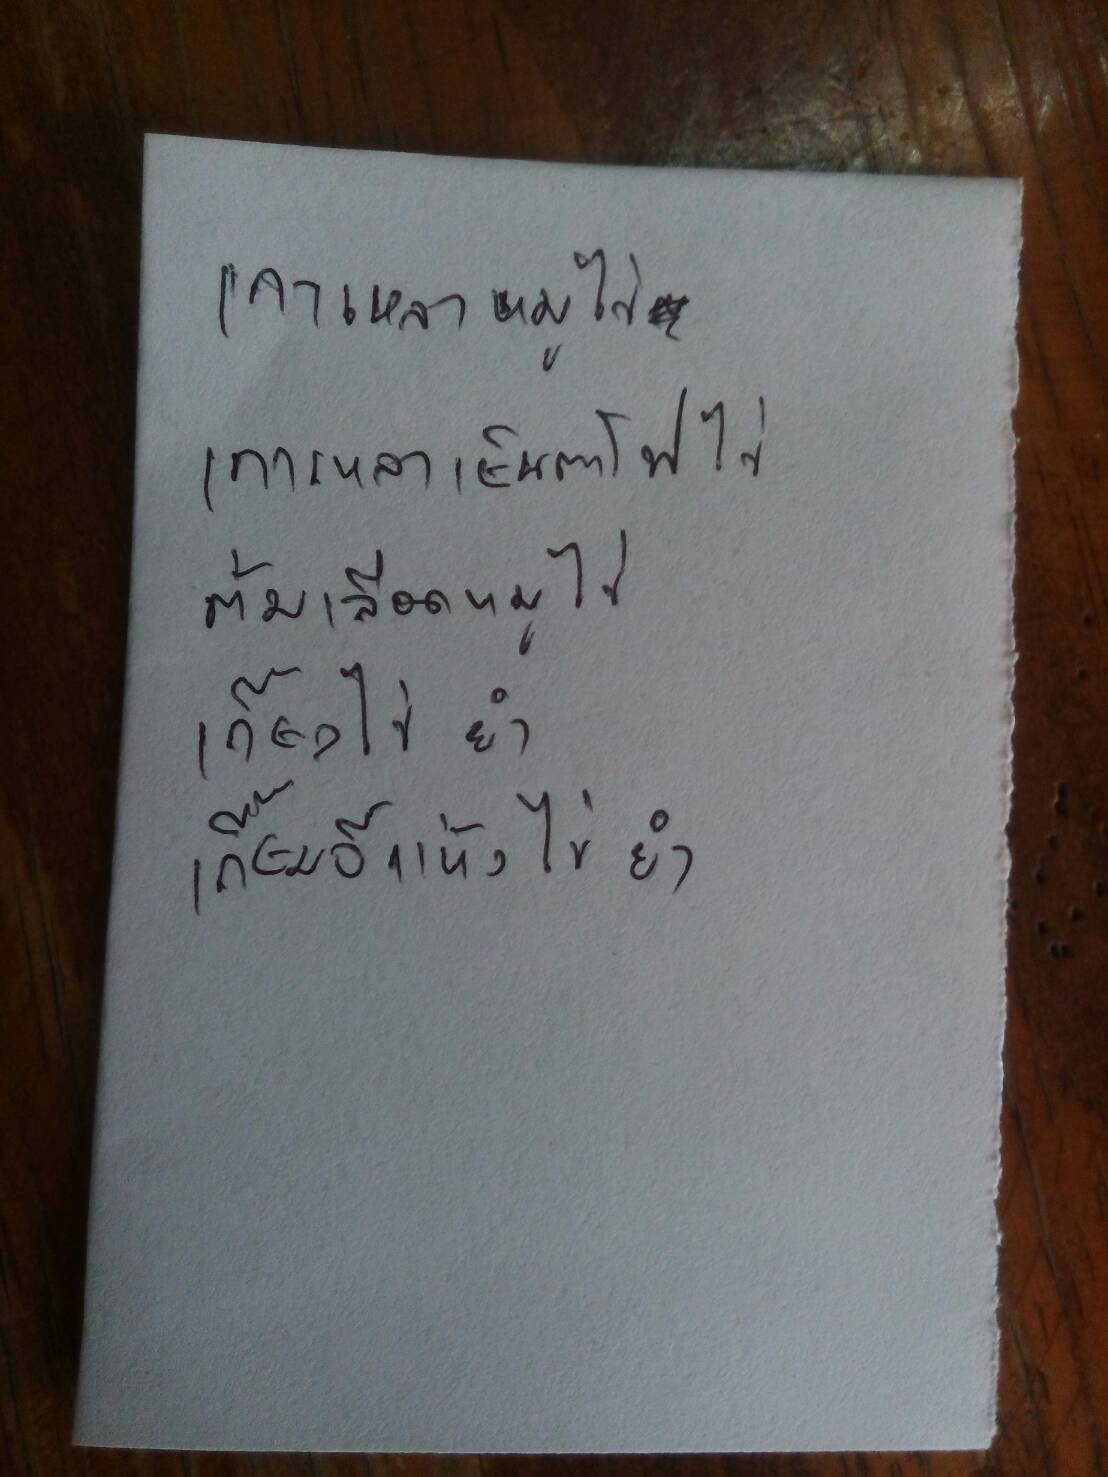 เกาเหลา หมูไข่
เกาเหลาเย็นตาโฟไข่
ต้มเลือดหมูไข่
เกี๊ยวไข่ ยำ
เกี้ยมอี๋แห้งไข่ ยำ